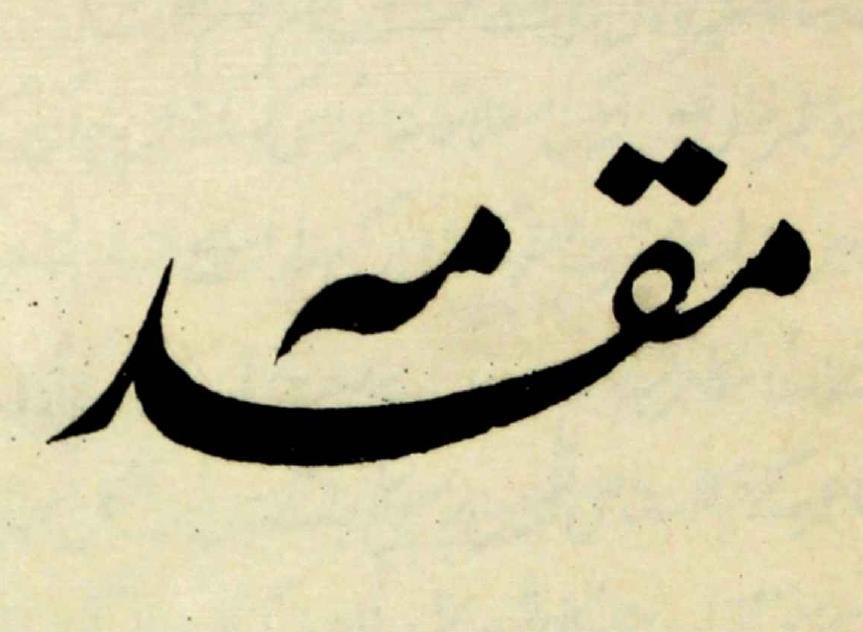 مقدمه